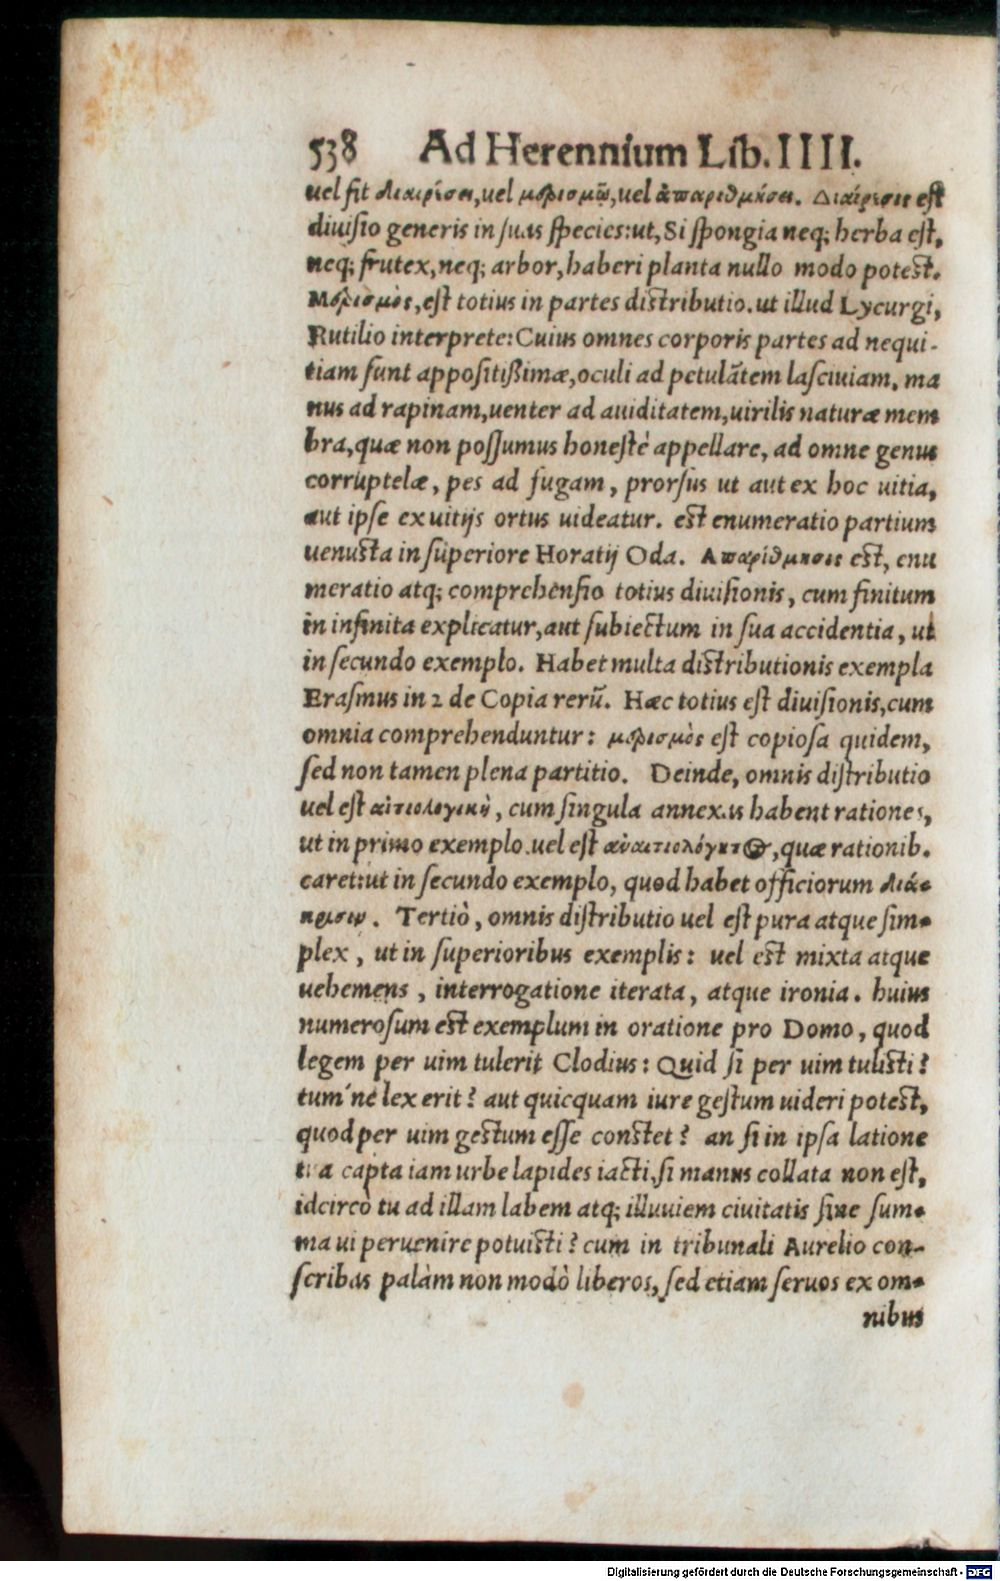 538 Ad Herennium Lib. IIII.
uel fit διαιρέσει, uel μερισμῶ, uel ἀπαριθμήσει. Διαίρεσις est
diuisio generis in suas species: ut, Si spongia neq; herba est,
neq; frutex, neq; arbor, haberi planta nullo modo potest.
Μερισμὸς, est totius in partes distributio. ut illud Lycurgi,
Rutilio interprete: Cuius omnes corporis partes ad nequi-
tiam sunt appositißimæ, oculi ad petulātem lasciuiam, ma
nus ad rapinam, uenter ad auiditatem, uirilis naturæ mem
bra, quæ non possumus honestè appellare, ad omne genus
corruptelæ, pes ad fugam, prorsus ut aut ex hoc uitia,
aut ipse ex uitijs ortus uideatur. est enumeratio partium
uenusta in superiore Horatij Oda. Απαρίθμησις est, enu
meratio atq; comprehensio totius diuisionis, cum finitum
in infinita explicatur, aut subiectum in sua accidentia, ut
in secundo exemplo. Habet multa distributionis exempla
Erasmus in 2 de Copia rerū. Hæc totius est diuisionis, cum
omnia comprehenduntur: μερισμὸς est copiosa quidem,
sed non tamen plena partitio. Deinde, omnis distributio
uel est αἰτιολογικὴ, cum singula annexas habent rationes,
ut in primo exemplo. uel est ἀναιτιολόγητος, quæ rationib.
caret: ut in secundo exemplo, quod habet officiorum διά-
κρισιν. Tertiò, omnis distributio uel est pura atque sim-
plex, ut in superioribus exemplis: uel est mixta atque
uehemens, interrogatione iterata, atque ironia. huius
numerosum est exemplum in oratione pro Domo, quod
legem per uim tulerit Clodius: Quid si per uim tulisti?
tum´ne lex erit? aut quicquam iure gestum uideri potest,
quod per uim gestum esse constet? an si in ipsa latione
tua capta iam urbe lapides iacti, si manus collata non est,
idcircò tu ad illam labem atq; illuuiem ciuitatis sine sum-
ma ui peruenire potuisti? cum in tribunali Aurelio con-
scribas palàm non modò liberos, sed etiam seruos ex om-
nibus
Digitalisierung gefördert durch die Deutsche Forschungsgemeinschaft - DFG